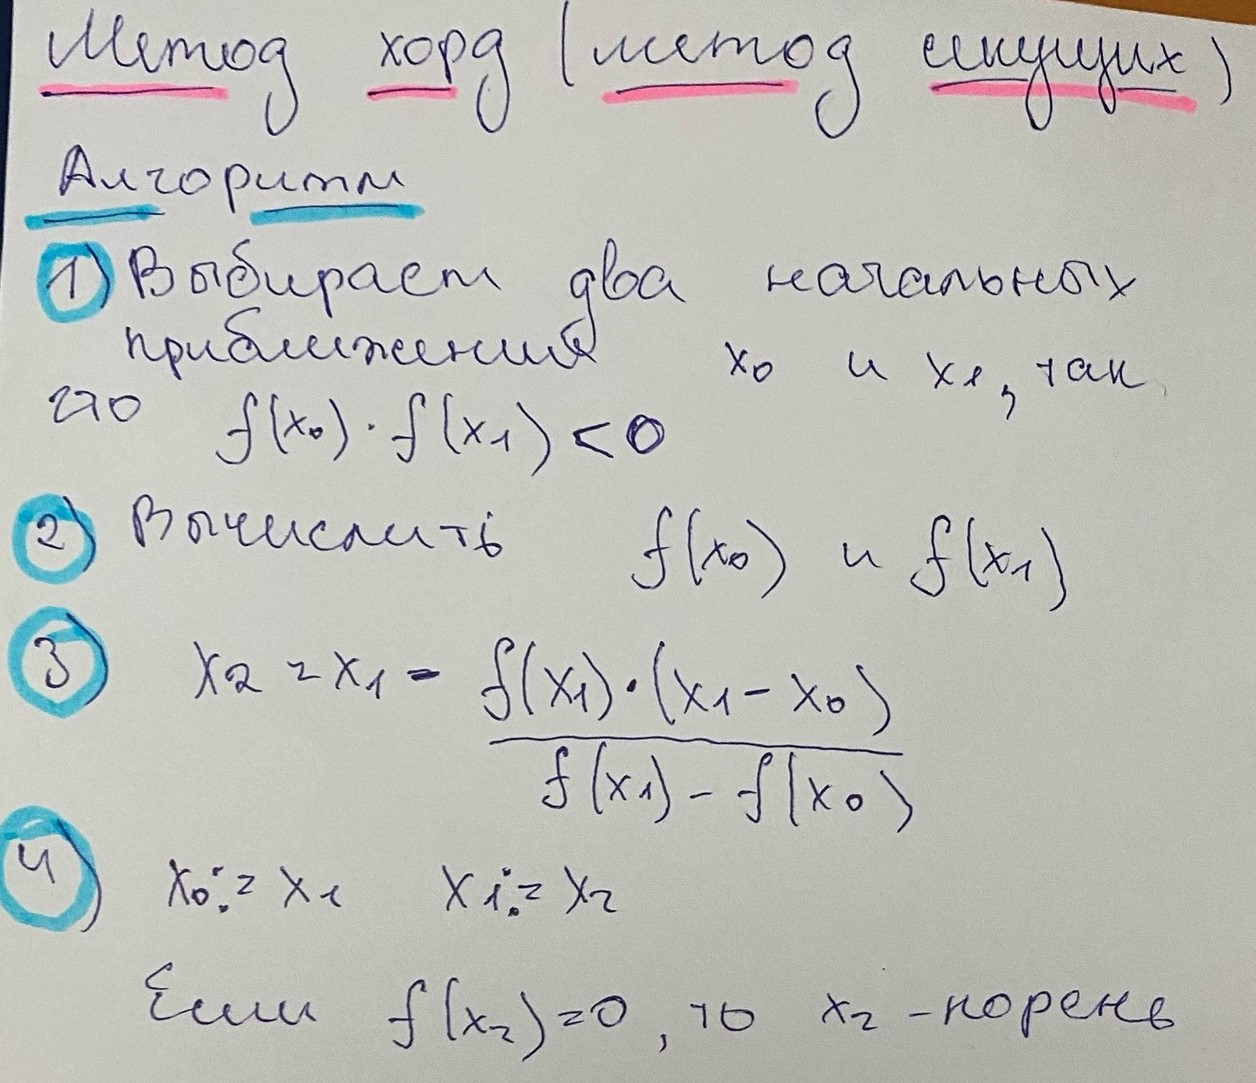 Метод хорд (метод секущих)
Алгоритм
1) Выбираем два начальных
приближения x₀ и x₁, так
что f(x₀)·f(x₁)<0
2) Вычислить f(x₀) и f(x₁)
3) x₂ = x₁ - f(x₁)·(x₁-x₀)
f(x₁)-f(x₀)
4) x₀:=x₁ x₁:=x₂
Если f(x₂)=0, то x₂ - корень